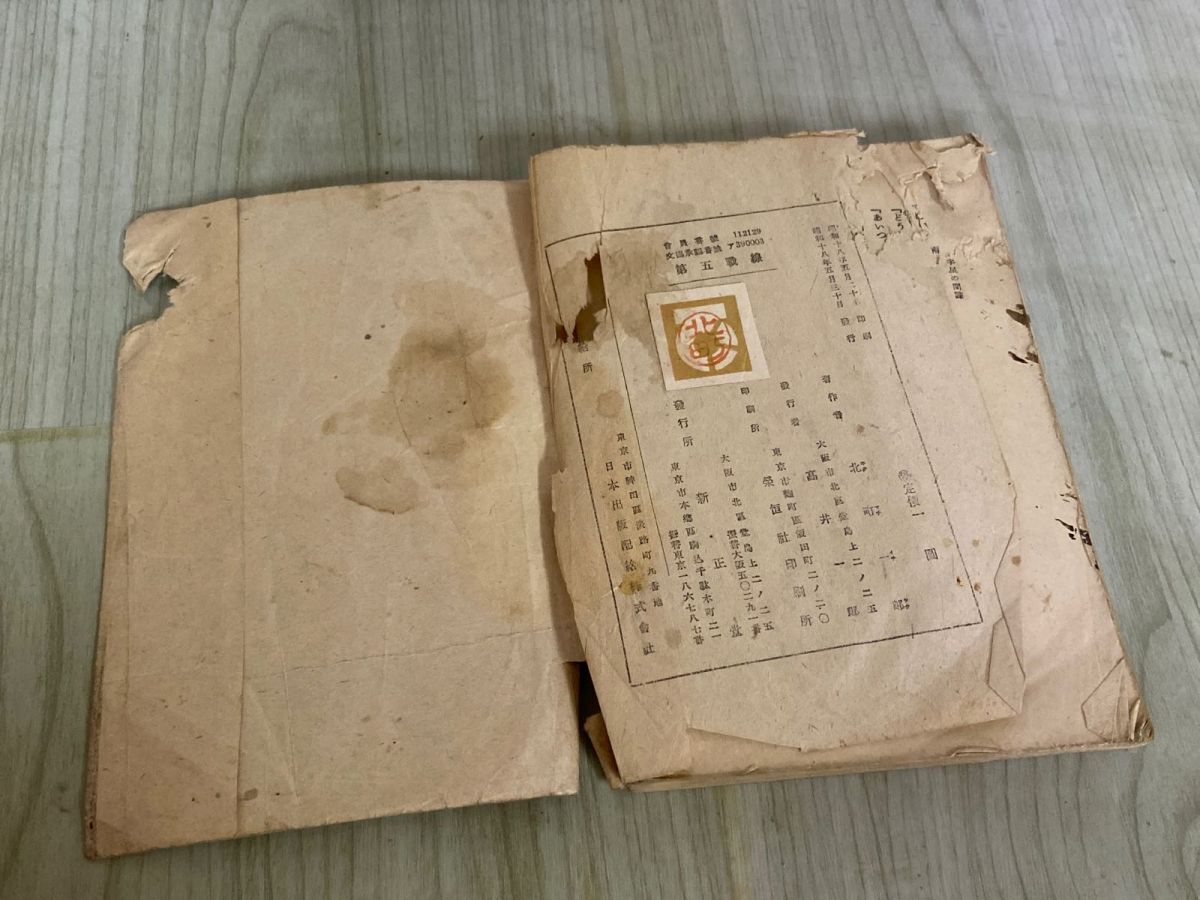 「どう
「あいつ
會員番號 112129
文協承認番號 ア390003
第五戰線
昭和十八年五月二十日 印刷
昭和十八年五月三十日 發行
定價一圓
著作者 北町一郎
大阪市北區堂島上二ノ二五
發行者 高井一郎
東京市麴町區飯田町二ノ二〇
印刷所 榮恒社印刷所
大阪市北區堂島上二ノ二五
振替大阪五〇二九一番
發行所 新正堂
東京市本鄕區駒込千駄木町二一
振替東京一八六七八七番
給所
東京市神田區淡路町九番地
日本出版配給株式會社